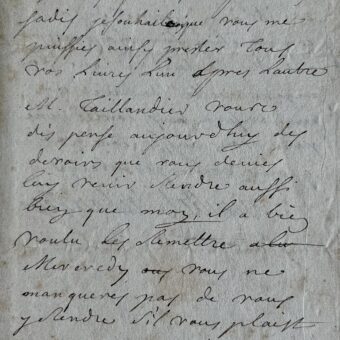 jadis je souhaite que vous me
puissies ainsy prester tous
vos livres l'un apres lautre
M. Taillandier vous
dispense aujourdhuy des
devoirs que vous devies
luy venir rendre aussi
bien que moy, il a bien
voulu les remettre a
Mecredy ou vous ne
manqueres pas de vous
y rendre s'il vous plaist